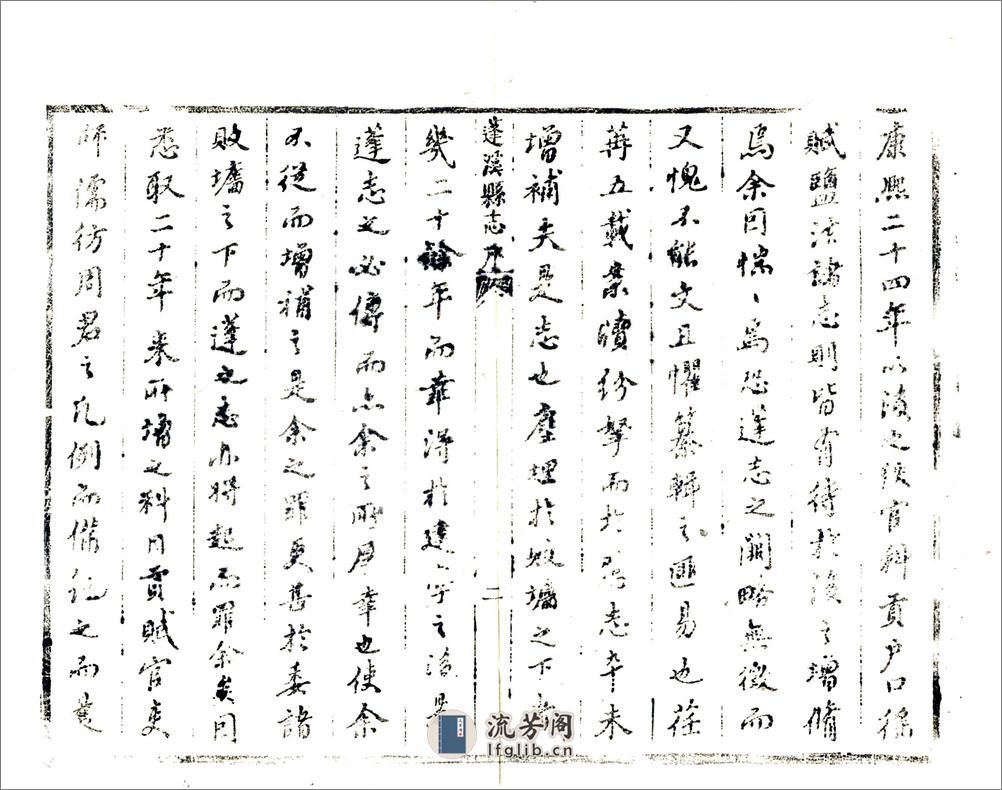 康熙二十四年以後之職官科貢戶口徭
賦鹽法諸志則皆有待於後之增脩
焉余因惴〻焉恐蓬志之闕略無徵而
又愧不能文且懼纂輯之匪易也荏
苒五載案牘紛拏而於志卒未
增補夫是志也塵埋於敗墉之下者
蓬溪縣志序
二
幾二十餘年而幸得於建之後是
蓬志之必傳而亦余之所厚幸也使余
不從而增補之是余之罪更甚於委諸
敗墉之下而蓬之志亦將起而罪余矣因
悉取二十年來所增之科目貢賦官吏
師儒仿周君之凡例而備紀之而是
流芳阁
lfglib.cn